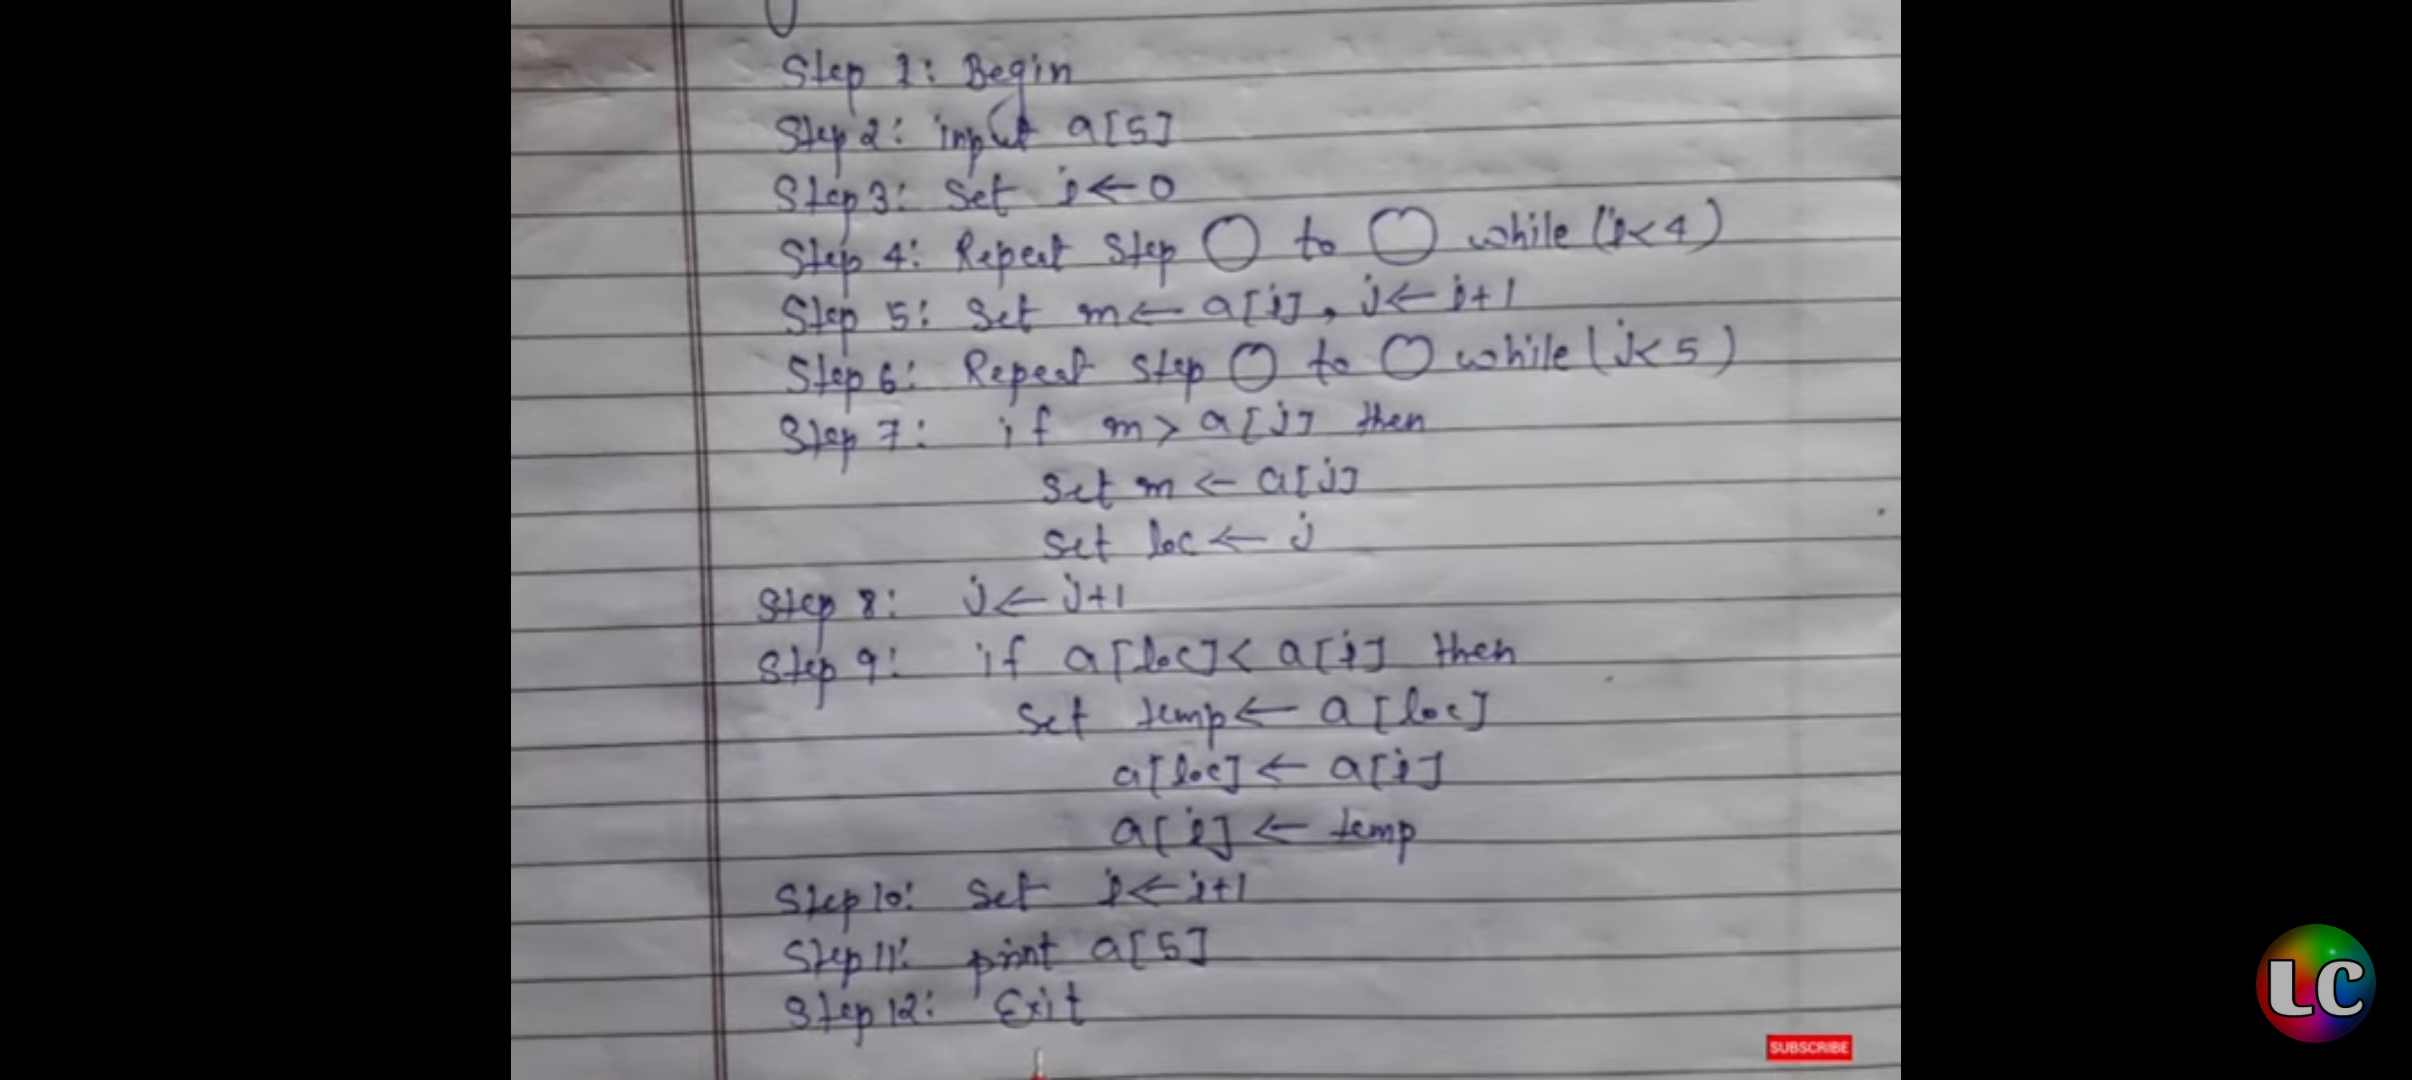 Step 1: Begin
Step 2: input a[5]
Step 3: Set i ← 0
Step 4: Repeat Step ◯ to ◯ while (i<4)
Step 5: Set m ← a[i], j ← i+1
Step 6: Repeat Step ◯ to ◯ while (j<5)
Step 7: if m > a[j] then
Set m ← a[j]
Set loc ← j
Step 8: j ← j+1
Step 9: if a[loc] < a[i] then
Set temp ← a[loc]
a[loc] ← a[i]
a[i] ← temp
Step 10: Set i ← i+1
Step 11: print a[5]
Step 12: Exit
LC
SUBSCRIBE